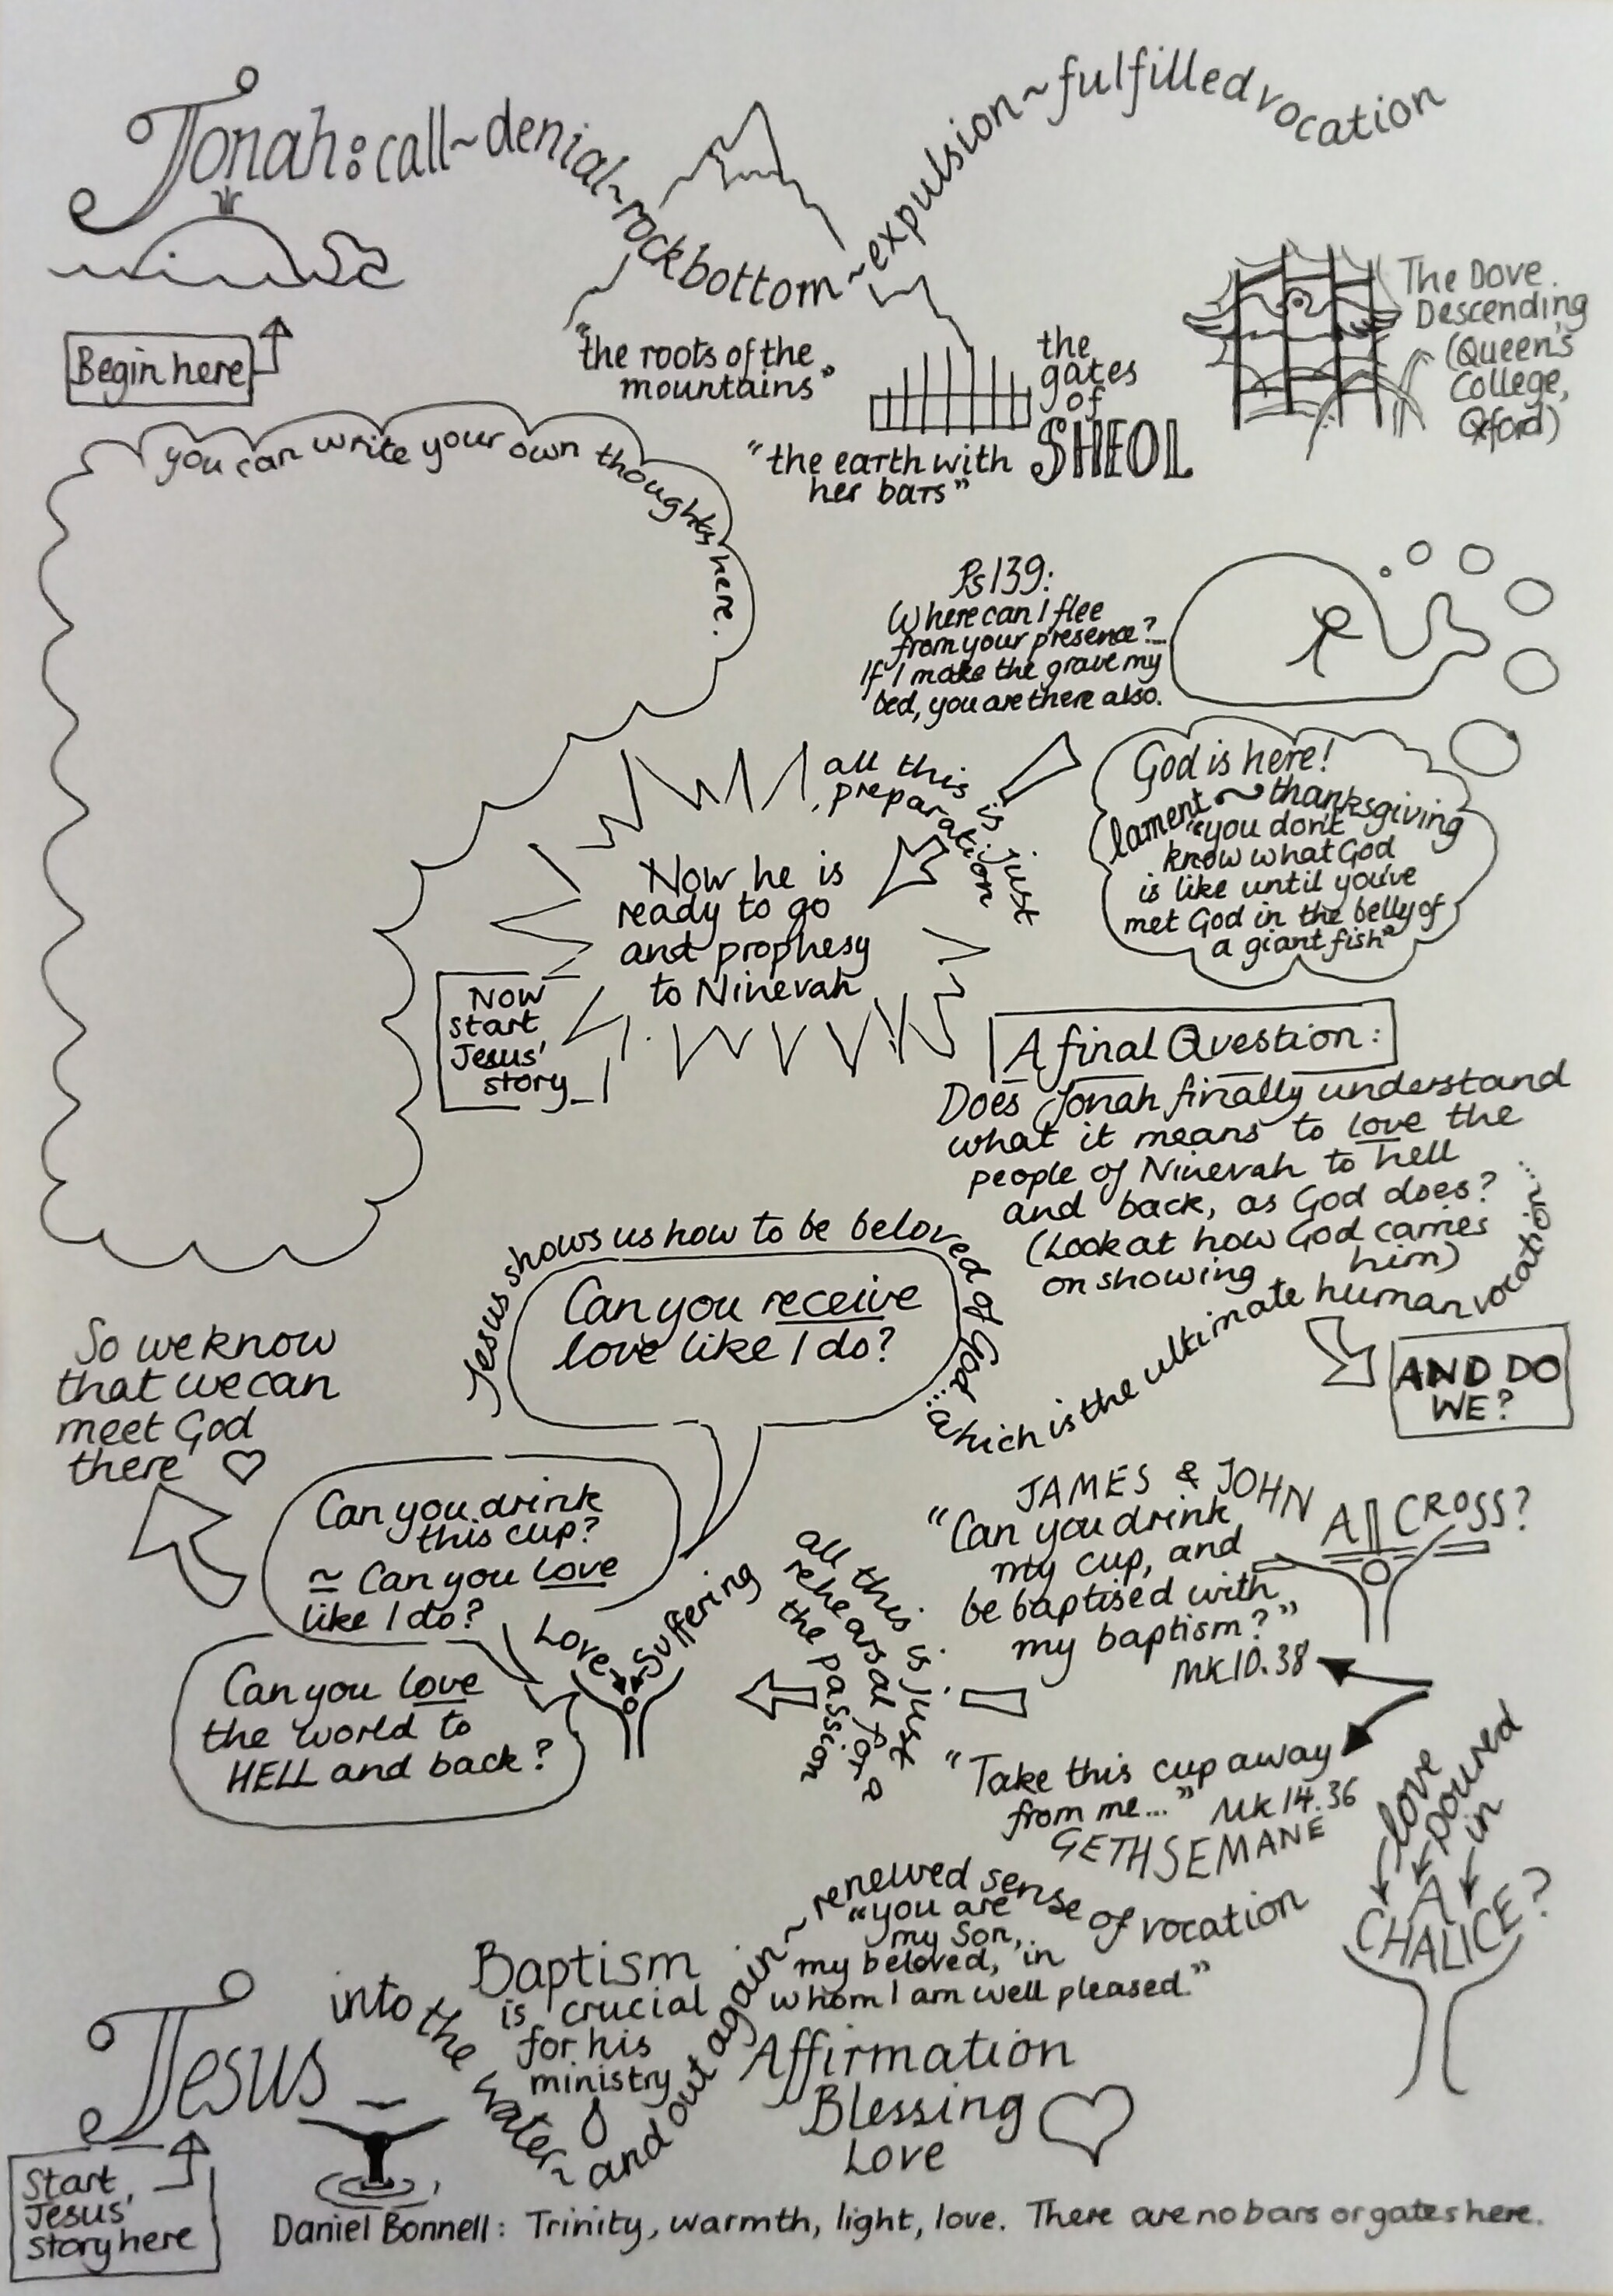 Jonah: call ~ denial ~ rock bottom ~ expulsion ~ fulfilled vocation
Begin here
"the roots of the
mountains"
the
gates
of
SHEOL
"the earth with
her bars"
The Dove
Descending
(Queen's
College,
Oxford)
you can write your own thoughts here.
Ps 139:
Where can I flee
from your presence?...
If I make the grave my
bed, you are there also.
God is here!
lament ~ thanksgiving
"you don't
know what God
is like until you've
met God in the belly of
a giant fish"
all this is just
preparation
Now he is
ready to go
and prophesy
to Ninevah
Now
start
Jesus'
story
A final Question:
Does Jonah finally understand
what it means to love the
people of Ninevah to hell
and back, as God does?
(Look at how God carries
on showing him)
AND DO
WE?
Jesus
Start
Jesus'
story here
into the water ~ and out again ~ renewed sense of vocation
Baptism
is crucial
for his
ministry
"you are
my Son,
my beloved, in
whom I am well pleased."
Affirmation
Blessing
Love
Daniel Bonnell: Trinity, warmth, light, love. There are no bars or gates here.
love
poured
in
A
CHALICE?
"Take this cup away
from me..." Mk 14.36
GETHSEMANE
JAMES & JOHN
"Can you drink
my cup, and
be baptised with
my baptism?"
Mk 10.38
A CROSS?
all this is just
rehearsal for a
the passion
Love
Suffering
Can you love
the world to
HELL and back?
Can you drink
this cup?
~ Can you love
like I do?
Can you receive
love like I do?
Jesus shows us how to be beloved of God...
which is the ultimate human vocation...
So we know
that we can
meet God
there